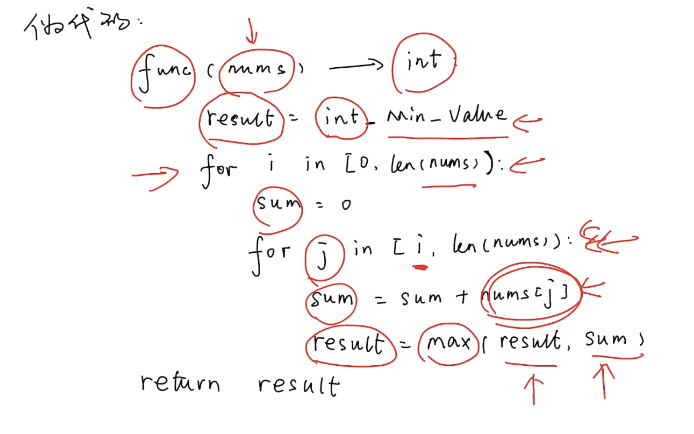 伪代码:
func(nums) → int:
result = int_Min_Value
for i in [0, len(nums)):
sum = 0
for j in [i, len(nums)):
sum = sum + nums[j]
result = max(result, sum)
return result